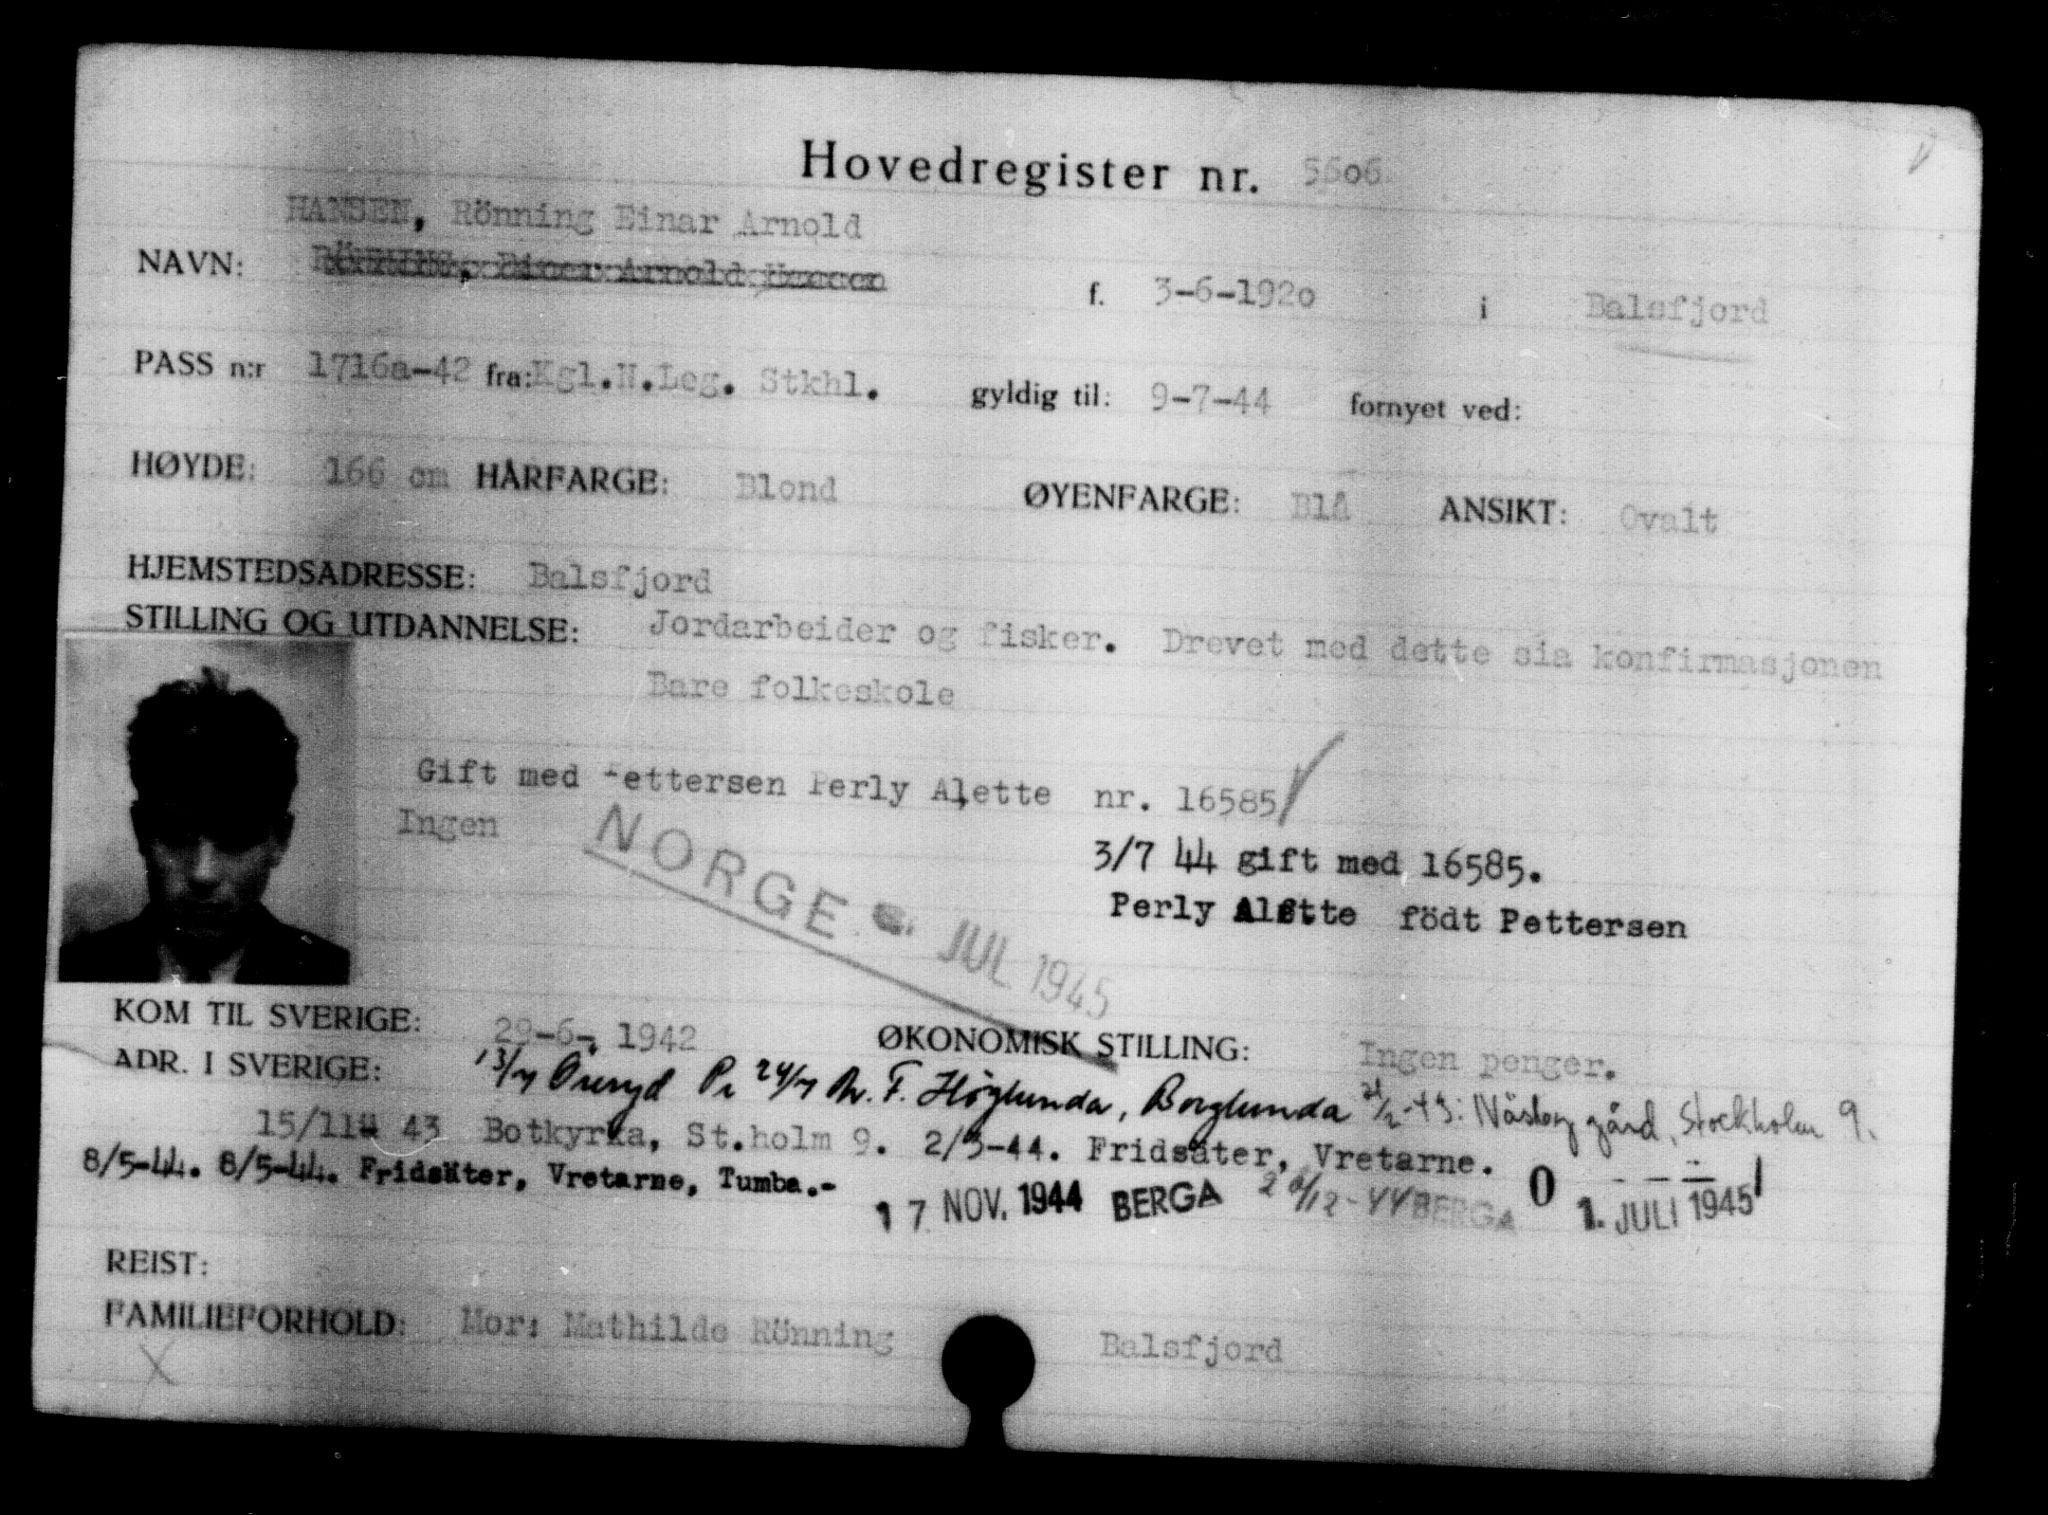 Hovedregister nr. 5606
HANSEN, Rönning Einar Arnold
NAVN: RÖNNING, Einar Arnold Hansen f. 3-6-1920 i Balsfjord
PASS n:r 1716a-42 fra: Kgl.N.Leg. Stkhl. gyldig til: 9-7-44 fornyet ved:
HØYDE: 166 cm HÅRFARGE: Blond ØYENFARGE: Blå ANSIKT: Ovalt
HJEMSTEDSADRESSE: Balsfjord
STILLING OG UTDANNELSE: Jordarbeider og fisker. Drevet med dette sia konfirmasjonen
Bare folkeskole
Gift med Pettersen Perly Alette nr. 16585
Ingen
3/7 44 gift med 16585.
Perly Alette födt Pettersen
NORGE JUL 1945
KOM TIL SVERIGE: 29-6- 1942 ØKONOMISK STILLING: Ingen penger.
ADR. I SVERIGE: 13/7 Öreryd Pr 24/7 F. Höglunda, Borglunda gård, Stockholm 9.
15/11 43 Botkyrka, St.holm 9. 2/3-44. Fridsäter, Vretarne.
8/5-44. 8/5-44. Fridsäter, Vretarne, Tumba.-
17 NOV. 1944 BERGA /12-44 BERGA O 1. JULI 1945
REIST:
FAMILIEFORHOLD: Mor: Mathilde Rönning Balsfjord
X